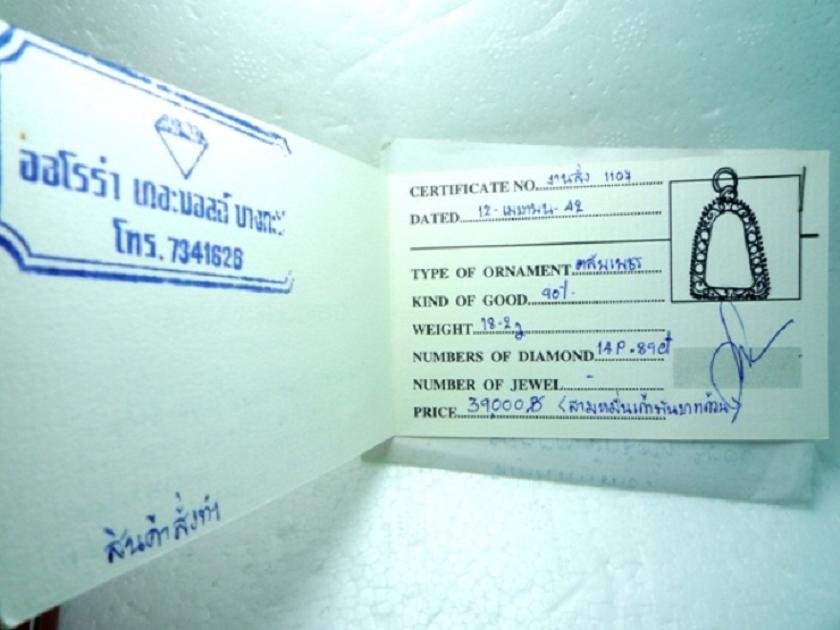 ออโรร่า เกอะมอลล์ บางกะปิ
โทร. 7341626
สินค้าสั่งทำ
CERTIFICATE NO. งานสั่ง 1107
DATED 12 - เมษายน - 42
TYPE OF ORNAMENT ตลับเพชร
KIND OF GOOD 90%
WEIGHT 18.2g
NUMBERS OF DIAMOND 14P .89ct
NUMBER OF JEWEL -
PRICE 39,000.฿ (สามหมื่นเก้าพันบาทถ้วน)